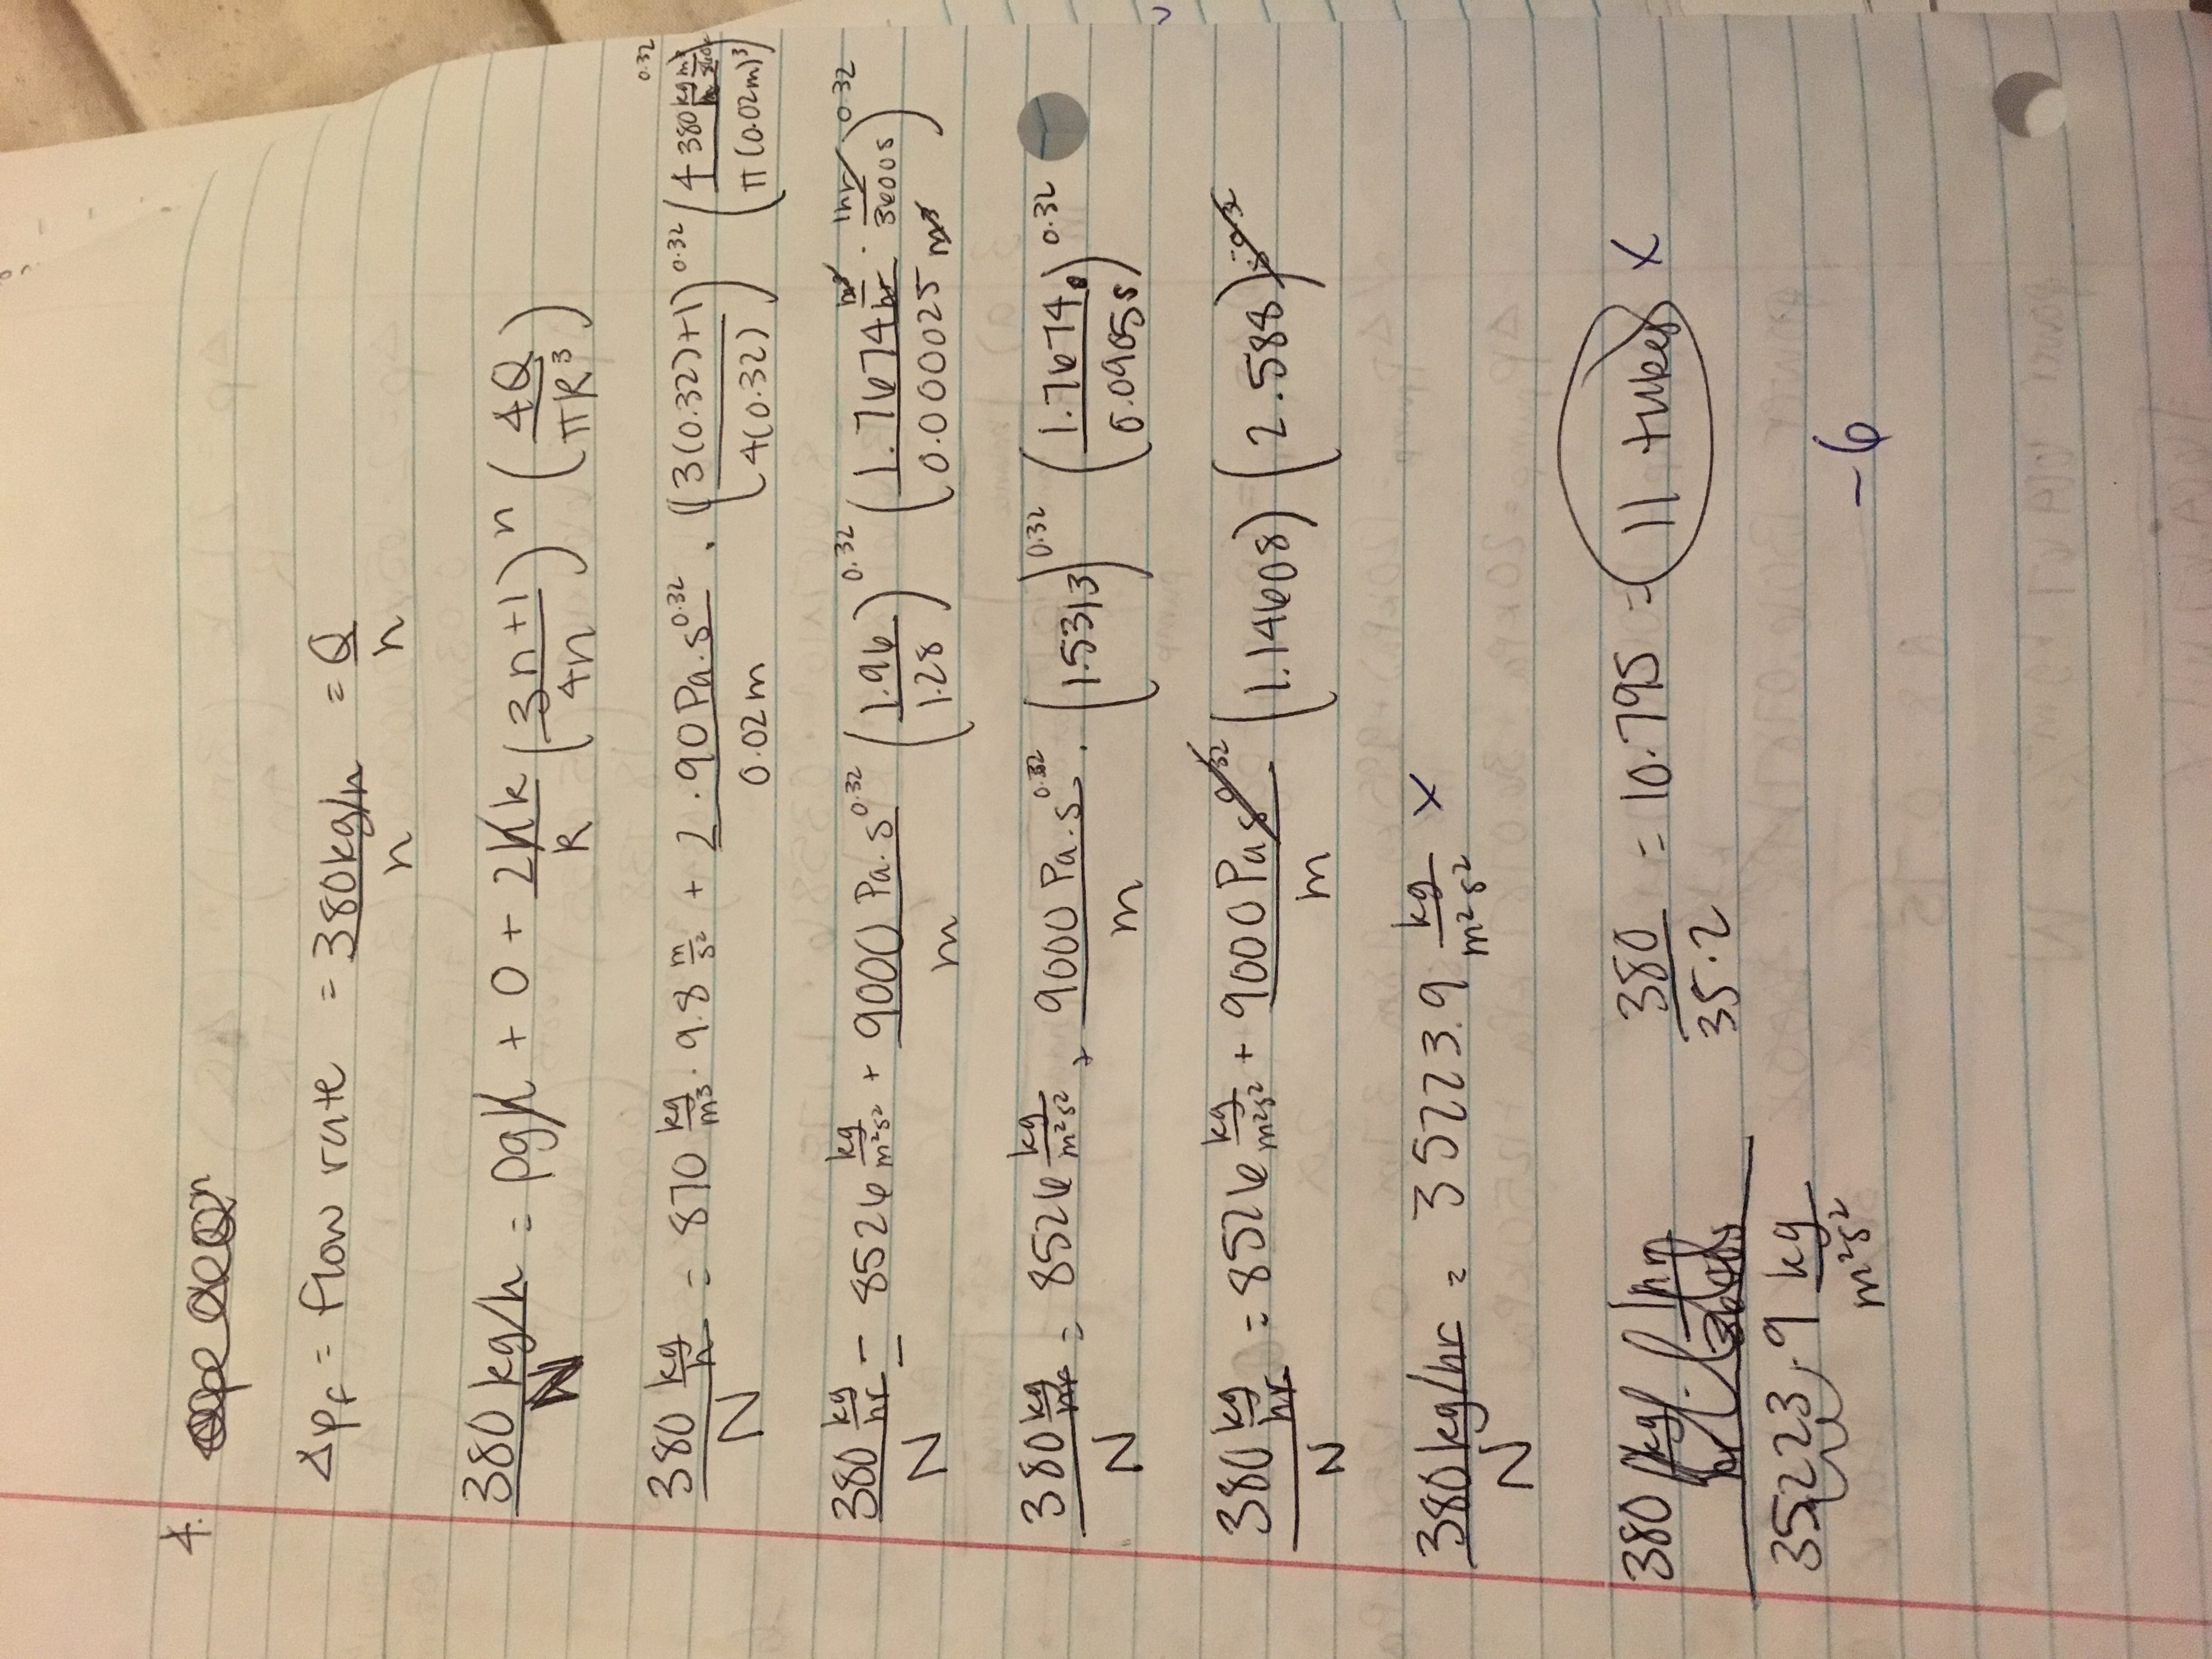 4.
Δp_f = flow rate = 380kg/h / n = Q / n
380 kg/h / N = ρgL + 0 + 2Lk / R (3n+1 / 4n)^n (4Q / πR³)
380 kg/h / N = 870 kg/m³ · 9.8 m/s² + 2 · 90 Pa·s^0.32 / 0.02m · (3(0.32)+1 / 4(0.32))^0.32 (4 380 kg/h / π(0.02m)³)^0.32
380 kg/hr / N = 8526 kg/m²s² + 9000 Pa·s^0.32 / m (1.96 / 1.28)^0.32 (1.7674 m³/hr · 1hr/3600s / 0.000025 m³)^0.32
380 kg/hr / N = 8526 kg/m²s² + 9000 Pa·s^0.32 / m · (1.5313)^0.32 (1.7674 / 0.0905s)^0.32
380 kg/hr / N = 8526 kg/m²s² + 9000 Pa s^0.32 / m (1.14608) (2.588) s^-0.32
380kg/hr / N = 35223.9 kg/m²s² x
380 kg/hr · 1hr/3600s / 35223.9 kg/m²s² 380 / 35.2 = 10.795 = 11 tubes x
-6